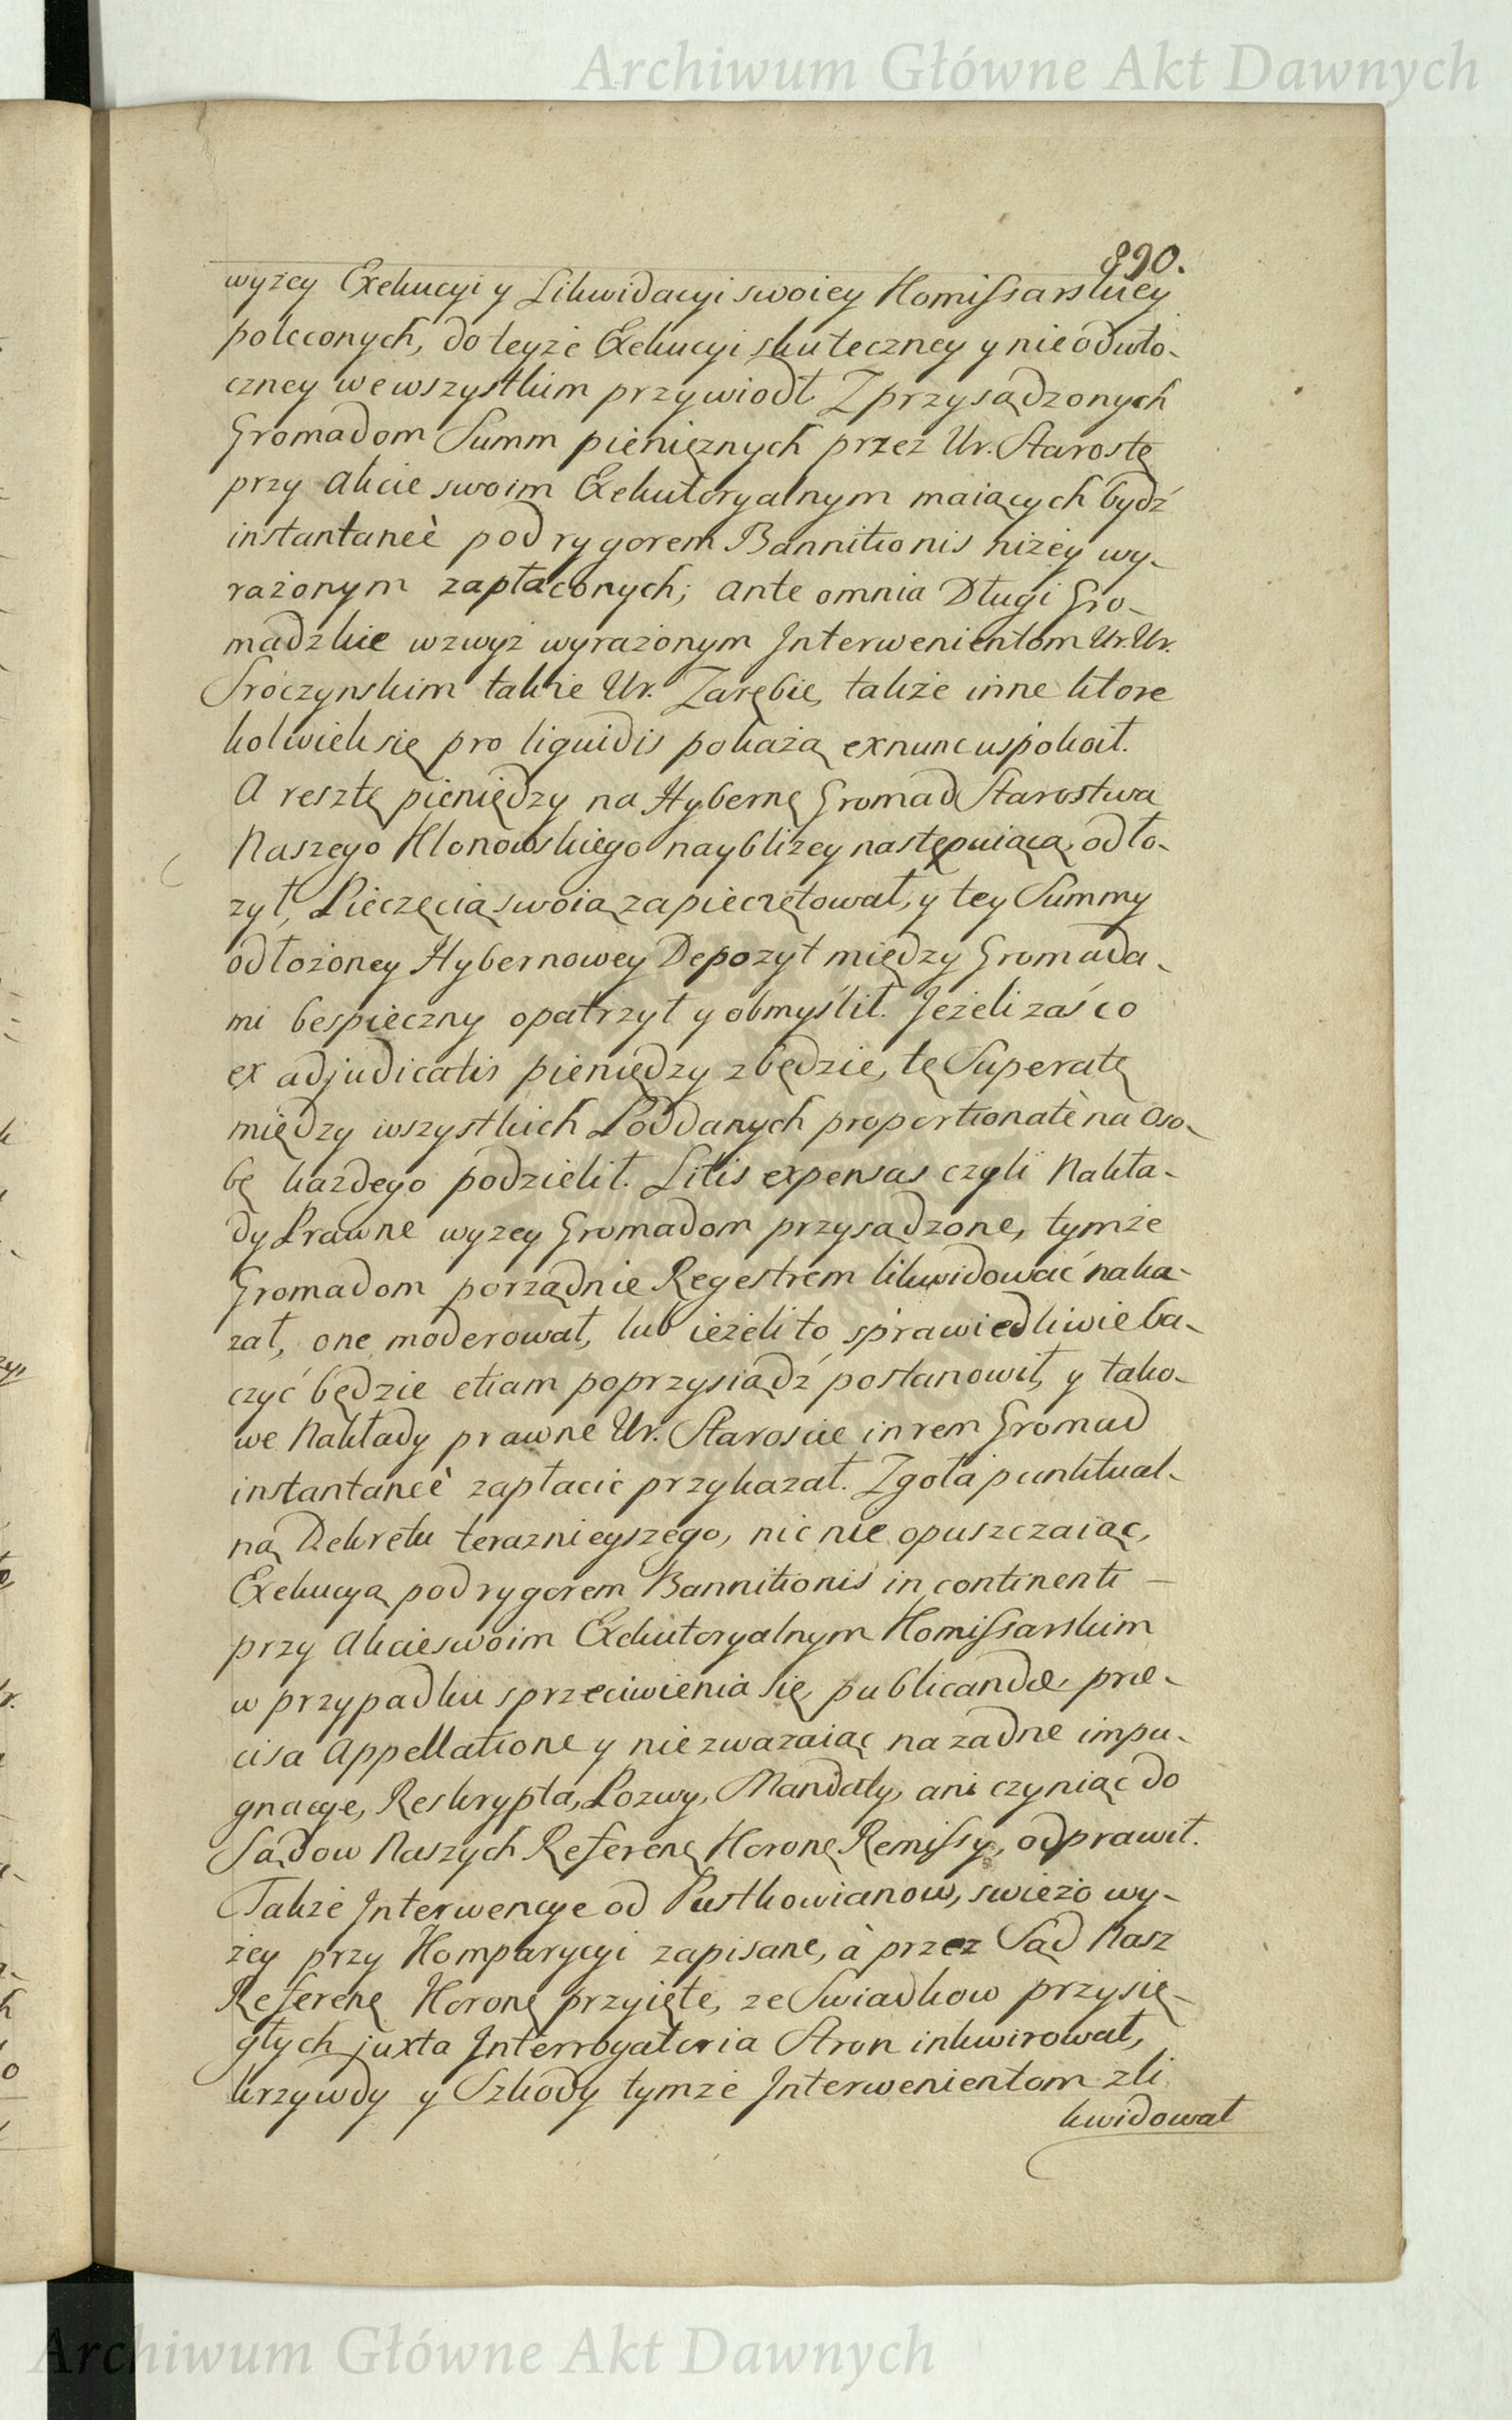 Archiwum Główne Akt Dawnych
890.
wyżey Exekucyi y Likwidacyi swoiey Kommissarskiey
poleconych, do teyże Exekucyi skuteczney y nieodwło-
czney we wszystkim przywiodł. Z przysądzonych
Gromadom Summ pieniężnych przez Ur. Starostę
przy Akcie swoim Exekutoryalnym maiących bydź
instantaneè pod rygorem Bannitionis niżey wy-
rażonym zapłaconych; ante omnia Długi Gro-
madzkie wzwyż wyrażonym Interwenientom Ur. Ur.
Sroczynskim takie Ur. Zarębie, także inne ktore
kolwiek się pro liquidis pokażą ex nunc uspokoił.
A resztę pieniędzy na Hybernę Gromad Starostwa
Naszego Klonowskiego naybliżey następuiącą, odło-
żył, Pieczęcią swoią zapieczętował, y tey Summy
odłożoney Hybernowey Depozyt między Gromada-
mi bespieczny opatrzył y obmyślił. Jeżeli zaś co
ex adjudicatis pieniędzy zbędzie, tę Superatę
między wszystkich Poddanych proportionatè na Oso-
bę każdego podzielił. Litis expensas czyli Nakła-
dy Prawne wyżey Gromadom przysądzone, tymże
Gromadom porządnie Regestrem likwidować naka-
zał, one moderował, lub ieżeli to sprawiedliwie ba-
czyć będzie etiam poprzysiądź postanowił, y tako-
we Nakłady prawne Ur. Staroscie in rem Gromad
instantaneè zapłacić przykazał. Zgoła punktual-
ną Dekretu teraznieyszego, nic nie opuszczaiąc,
Exekucyą pod rygorem Bannitionis in continenti –
przy Akcie swoim Exekutoryalnym Kommissarskim
w przypadku sprzeciwienia się, publicandæ, præ-
cisa Appellatione y nie zważaiąc na żadne impu-
gnacye, Reskrypta, Pozwy, Mandaty, ani czyniąc do
Sądow Naszych Referenę Koronę Remissy, odprawił.
Także Interwencye od Pustkowianow, swieżo wy-
żey przy Komparycyi zapisane, à przez Sąd Nasz
Referenę Koronę przyięte, ze Swiadkow przysię-
głych juxta Interrogatoria Stron inkwirował,
krzywdy y Szkody tymże Interwenientom zli
kwidował
Archiwum Główne Akt Dawnych